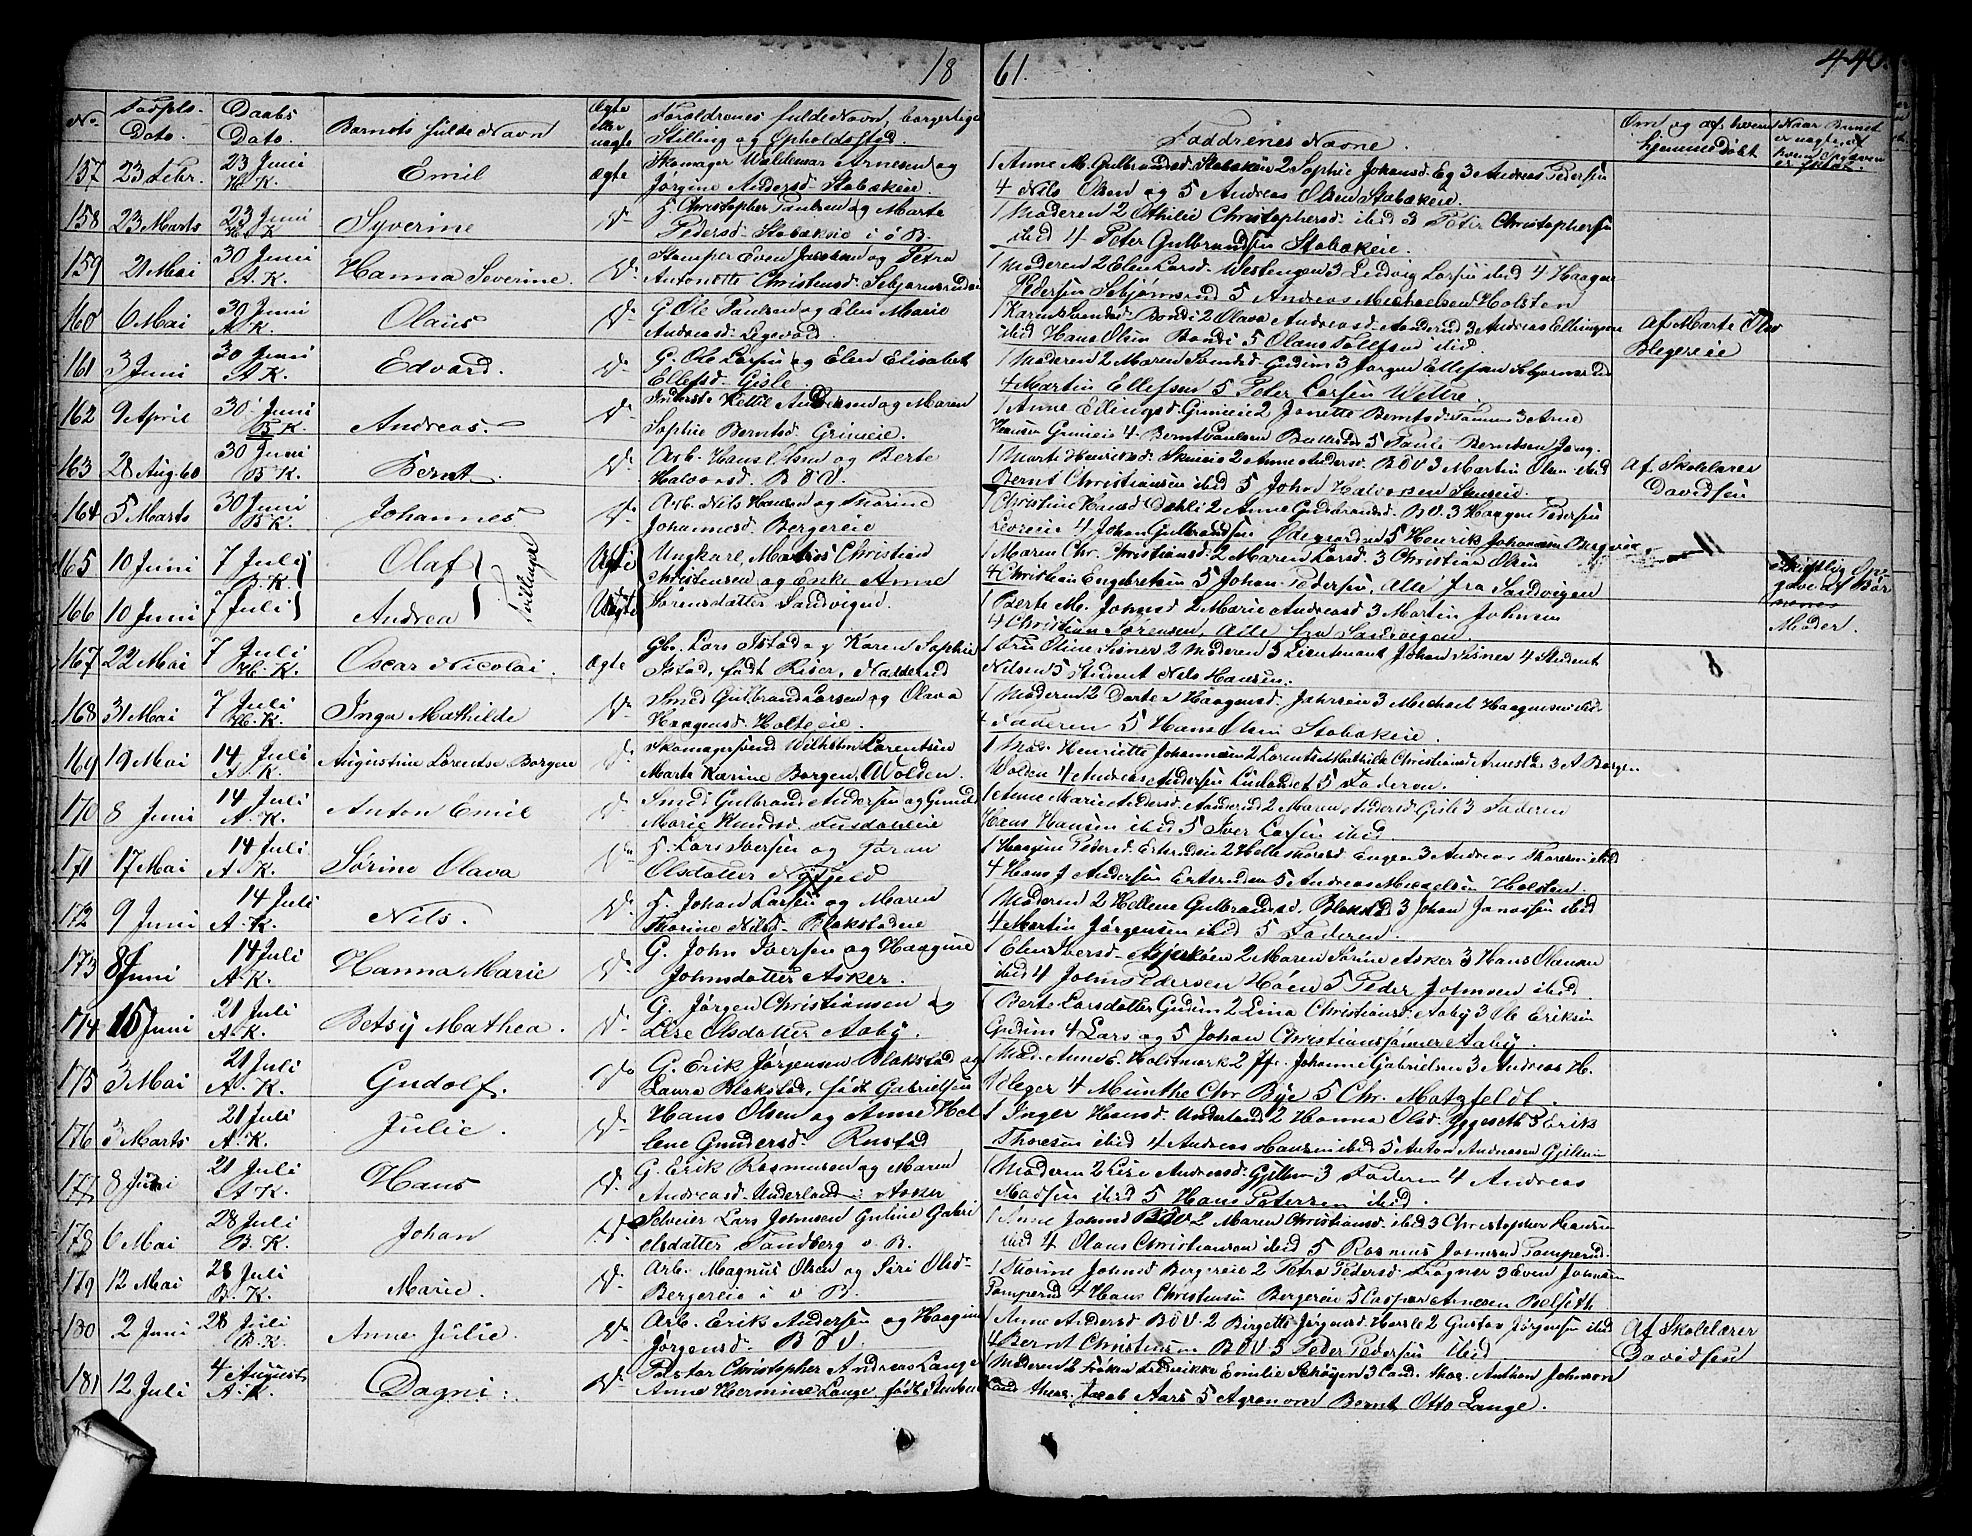 18 61. 440.
No. Fødsels- Dato. Daabs Dato. Barnets fulde Navn Ægte eller uægte Forældrenes fulde Navn, borgerlige Stilling og Opholdssted. Faddrenes Navne. Om og af hvem hjemmedøbt Naar Barnet er uægte, af hvem Opgaven
157 23 Febr. 23 Juni H. K. Emil ægte Skomager Waldemar Arnesen og 1 Anne M. Gulbrandsd. Stabækeie 2 Sophie Johansd. Eg 3 Andreas Pedersen
Jørgine Andersd. Stabækeie. 4 Nils Olsen og 5 Andreas Olsen Stabækeie.
158 23 Marts 23 Juni K. Syverine Do. G. Christopher Paulsen og Marte 1 Moderen 2 Othilie Christophersd. ibid 3 Peter Christophersen
Pedersd. Stabækeie i ø B. ibid 4 Peter Gulbrandsen Stabækeie.
159 21 Mai 30 Juni A. K. Hanna Severine. Do. Stamper Even Jacobsen og Petra 1 Moderen 2 Elen Larsd. Westengen 3 Ludvig Larsen ibid 4 Haagen
Antonette Christensd. Sebjørnsrud Pedersen Sebjørnsrud 5 Andreas Michaelsen Holsten
160 6 Mai 30 Juni A. K. Olaus Do. G. Ole Paulsen og Elen Marie Bondi 2 Olava Andreasd. Aanderud 3 Andreas Ellingsen af Marte
Andreasd. ibid Hans Olsen Bondi 5 Olaus Tollefsen ibid.
161 3 Juni 30 Juni A. K. Edvard. Do. G. Ole Larsen og Elen Elisabet 1 Moderen 2 Maren Gudim 3 Jørgen Ellefsen Sebjørnsrud
Ellefsd. Gisle. 4 Martin Ellefsen 5 Peter Larsen Wettre.
162 9 April 30 Juni B. K. Andreas. Do. Inderste Kettil Andersen og Maren 1 Anne Ellingsd. Grinieie 2 Janette Berntsd. 3 Arne
Sophie Berntsd. Grinieie. Hansen Grinieie 4 Bernt Paulsen 5 Paule Berntsen Jong.
163 28 Aug. 60 30 Juni B. K. Bernt. Do. Arb. Hans Olsen og Berte 1 Marte Henriksd. 2 Anne Andersd. B Ø V 3 Martin Olsen ibid af Skolelærer
Halvorsd. B Ø V. Bernt Christiansen ibid 5 Johan Halvorsen Davidsen
164 5 Marts 30 Juni B. K. Johannes Do. Arb. Nils Hansen og Thorine 1 Christine Hansd. Dæhli 2 Anne Gudbrandsd. B. V. 3 Haagen Pedersen
Johannesd. Bergereie 4 Johan Gulbrandsen Ødegaarden 5 Henrik Johansen
165 10 Juni 7 Juli B. K. Olaf Tvillinger Uægte Ungkarl, Christian 1 Maren Chr. Christiansd. 2 Maren Larsd. 3 Christian Olsen 11 skriftlig Op-
Christensen og Enke Anne 4 Christian Engebretsen 5 Johan Pedersen, Alle fra Sandvigen gave af Bør
166 10 Juni 7 Juli Andrea Uægte Sørensdatter Sandvigen. 1 Berte M. Johnsd. 2 Marie Andreasd. 3 Martin Johnsen nenes
4 Christian Sørensen, Alle fra Sandvigen. Moder.
167 22 Mai 7 Juli H. K. Oscar Nicolai. Ægte Gbr. Lars Istad og Karen Sophie 1 Fru Oline Sisner 2 Moderen 3 Lieutenant Johan Sisner 4 Student 8
Istad, født Riser, Nadderud Nilsen 5 Student Nils Hansen.
168 31 Mai 7 Juli H. K. Inga Mathilde Do. Smed Gulbrand Larsen og Olava 1 Moderen 2 Dorte Haagensd. 3 Michael Haagensen ibid
Haagensd. Holteie. 4 Faderen 5 Hans Olsen Stabækeie.
169 19 Mai 14 Juli A. K. Augustine Lorentse Borgen Do. Skomagersvend Wilhelm Lorentsen 1 Mad. Henriette Johannesen 2 Mathilde Christiansd. 3 A. Borgen
Marte Karine Borgen, Wolden. Wolden 4 Andreas Andersen 5 Faderen.
170 8 Juni 14 Juli A. K. Anton Emil Do. Smed Gulbrand Andersen og Gunild 1 Anne Marie Andersd. Aanderud 2 Maren Andersd. Gisle 3 Faderen
Marie Knudsd. Hansen ibid 5 Iver Larsen ibid.
171 17 Mai 14 Juli A. K. Sørine Olava Do. G. Lars Iversen og Jøran 1 Haagine Pedersd. 2 Helle Thoresd. Engen 3 Andreas Thoresen ibid
Olsdatter 4 Hans J Andersen 5 Andreas Michelsen Holsten.
172 9 Juni 14 Juli A. K. Nils. Do. G. Johan Larsen og Maren 1 Moderen 2 Hellene Gulbrandsd. Blakstad 3 Johan ibid
Thorine Nilsd. Blakstadeie 4 Martin Jørgensen ibid 5 Faderen.
173 8 Juni 14 Juli A. K. Hanna Marie Do. G. John Iversen og Haagine 1 Elen Iversd. 2 Maren Sørine Asker 3 Hans Olausen
Johnsdatter Asker. ibid 4 John Pedersen Høen 5 Peder Johnsen ibid.
174 15 Juni 21 Juli A. K. Betsy Mathea. Do. G. Jørgen Christiansen og 1 Berte Larsdatter Gudim 2 Lina Christiansd. Aaby 3 Ole Eriksen
Lise Olsdatter Aaby. Gudim 4 Lars og 5 Johan Christianssønner Aaby.
175 3 Mai 21 Juli A. K. Gudolf. Do. G. Erik Jørgensen Blakstad og 1 Mad. Anne E. Holstmark 2 Jfr. Johanne Gabrielsen 3 Andreas H.
Laura Blakstad, født Gabrielsen 4 Munthe Chr. Bye 5 Chr. Matzfeldt.
176 3 Marts 21 Juli A. K. Julie. Do. Hans Olsen og Anne Hel 1 Inger Hansd. Underland 2 Hanna Olsd. Yggeseth 3 Erik
lene Gundersd. Rustad Thoresen ibid 4 Andreas Hansen ibid 5 Anton Andreasen Gjellum
177 8 Juni 21 Juli A. K. Hans Do. G. Erik Rasmusen og Maren 1 Moderen 2 Lise Andreasd. Gjellum 3 Faderen 4 Andreas
Andreasd. Underland: Asker Madsen ibid 5 Hans Petersen ibid.
178 6 Mai 28 Juli B. K. Johan Do. Selveier Lars Johnsen Guline Gabri 1 Anne Johnsd. B Ø V 2 Maren Christiansd. ibid 3 Christopher Hansen
elsdatter Tandberg v. B. ibid 4 Olaus Christiansen ibid 5 Rasmus Johnsen Pamperud.
179 12 Mai 28 Juli B. K. Marie. Do. Arb. Magnus Olsen og Siri Olsd. 1 Thorine Johnsd. Bergereie 2 Petra Pedersd. Frogner 3 Even Johnsen
Bergereie i v B. Pamperud 4 Hans Christensen Bergereie 5 Casper Arnesen Belseth
180 2 Juni 28 Juli B. K. Anne Julie. Do. Arb. Erik Andersen og Haagine 1 Anne Andersd. B Ø V 2 Birgette Jørgensd. Hasle 2 Gustav Jørgensen ibid Af Skolelærer
Jørgensd. B Ø V 4 Bernt Christiansen B Ø V 5 Peder Pedersen ibid Davidsen
181 12 Juli 4 August A. K. Dagni: Do. Pastor Christopher Andreas Lange 1 Moderen 2 Frøken Frederikke Emilie Schøyen 3 Cand. theo. Anthon Johnson
Anne Hermine Lange født Cand. theo. Jacob Aars 5 Agronom Bernt Otto Lange.